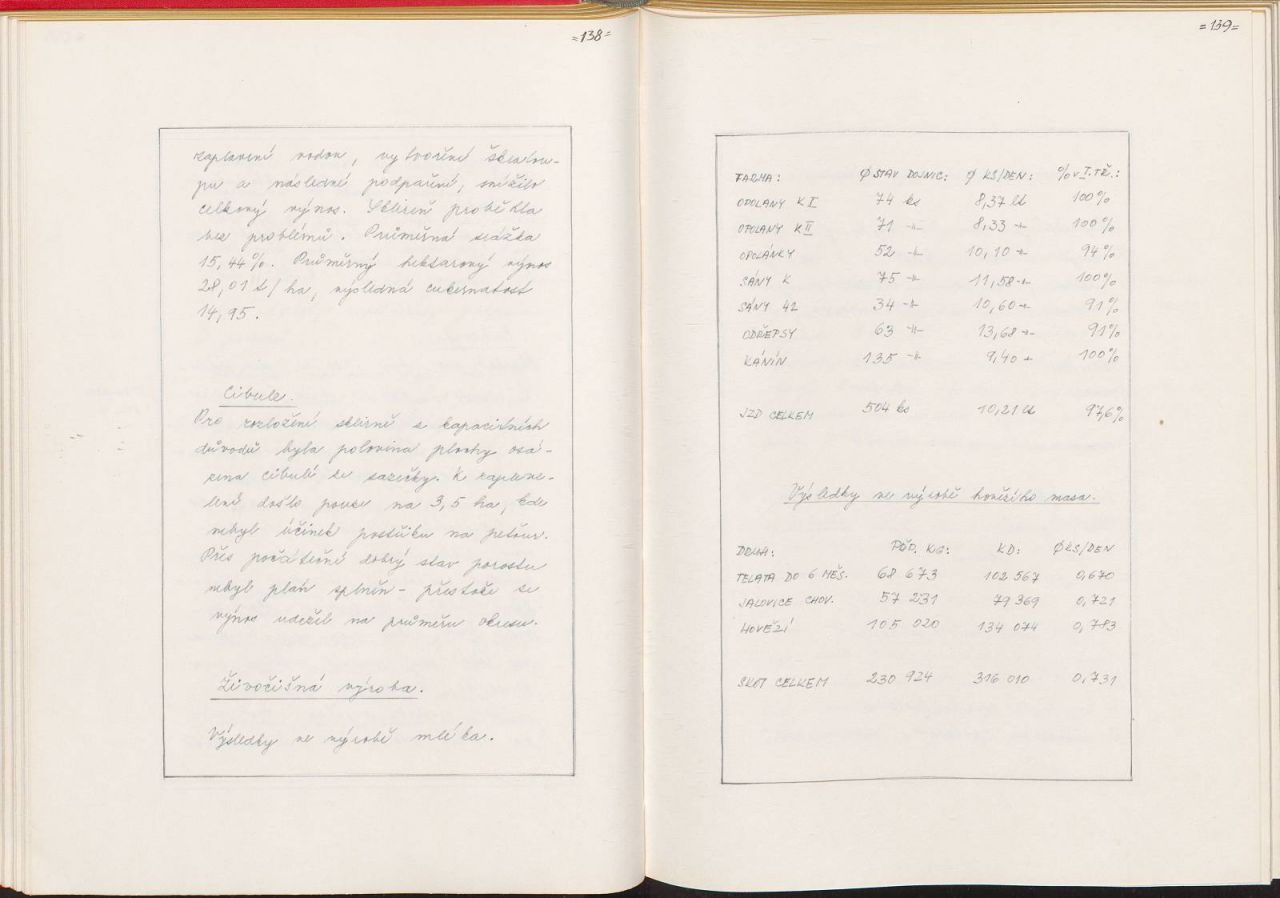 =138=
zaplavení vodou, vytvoření škralou-
pu a následné podpaření, snížilo
celkový výnos. Sklizeň proběhla
bez problémů. Průměrná srážka
15,44%. Průměrný hektarový výnos
28,01 t/ha, výsledná cukernatost
14,95.
Cibule.
Pro rozložení sklizně z kapacitních
důvodů byla polovina plochy osá-
zena cibulí ze sazečky. K zapleve-
lení došlo pouze na 3,5 ha, kde
nebyl účinek postřiku na peťour.
Přes počáteční dobrý stav porostu
nebyl plán splněn - přestože se
výnos udržel na průměru okresu.
Živočišná výroba.
Výsledky ve výrobě mléka.
=139=
FARMA: Ø STAV DOJNIC: Ø KS/DEN: % V I.TŘ.:
OPOLANY K I 74 ks 8,37 lt 100%
OPOLANY K II 71 -"- 8,33 -"- 100%
OPOLÁNKY 52 -"- 10,10 -"- 94%
SÁNY K 75 -"- 11,58 -"- 100%
SÁNY 42 34 -"- 10,60 -"- 91%
ODŘEPSY 63 -"- 13,68 -"- 91%
KÁNÍN 135 -"- 9,40 -"- 100%
JZD CELKEM 504 ks 10,21 lt 97,6%
Výsledky ve výrobě hovězího masa.
DRUH: POŘ. KG: KD: Ø KS/DEN
TELATA DO 6 MĚS. 68 673 102 567 0,670
JALOVICE CHOV. 57 231 79 369 0,721
HOVĚZÍ 105 020 134 074 0,783
SKOT CELKEM 230 924 316 010 0,731